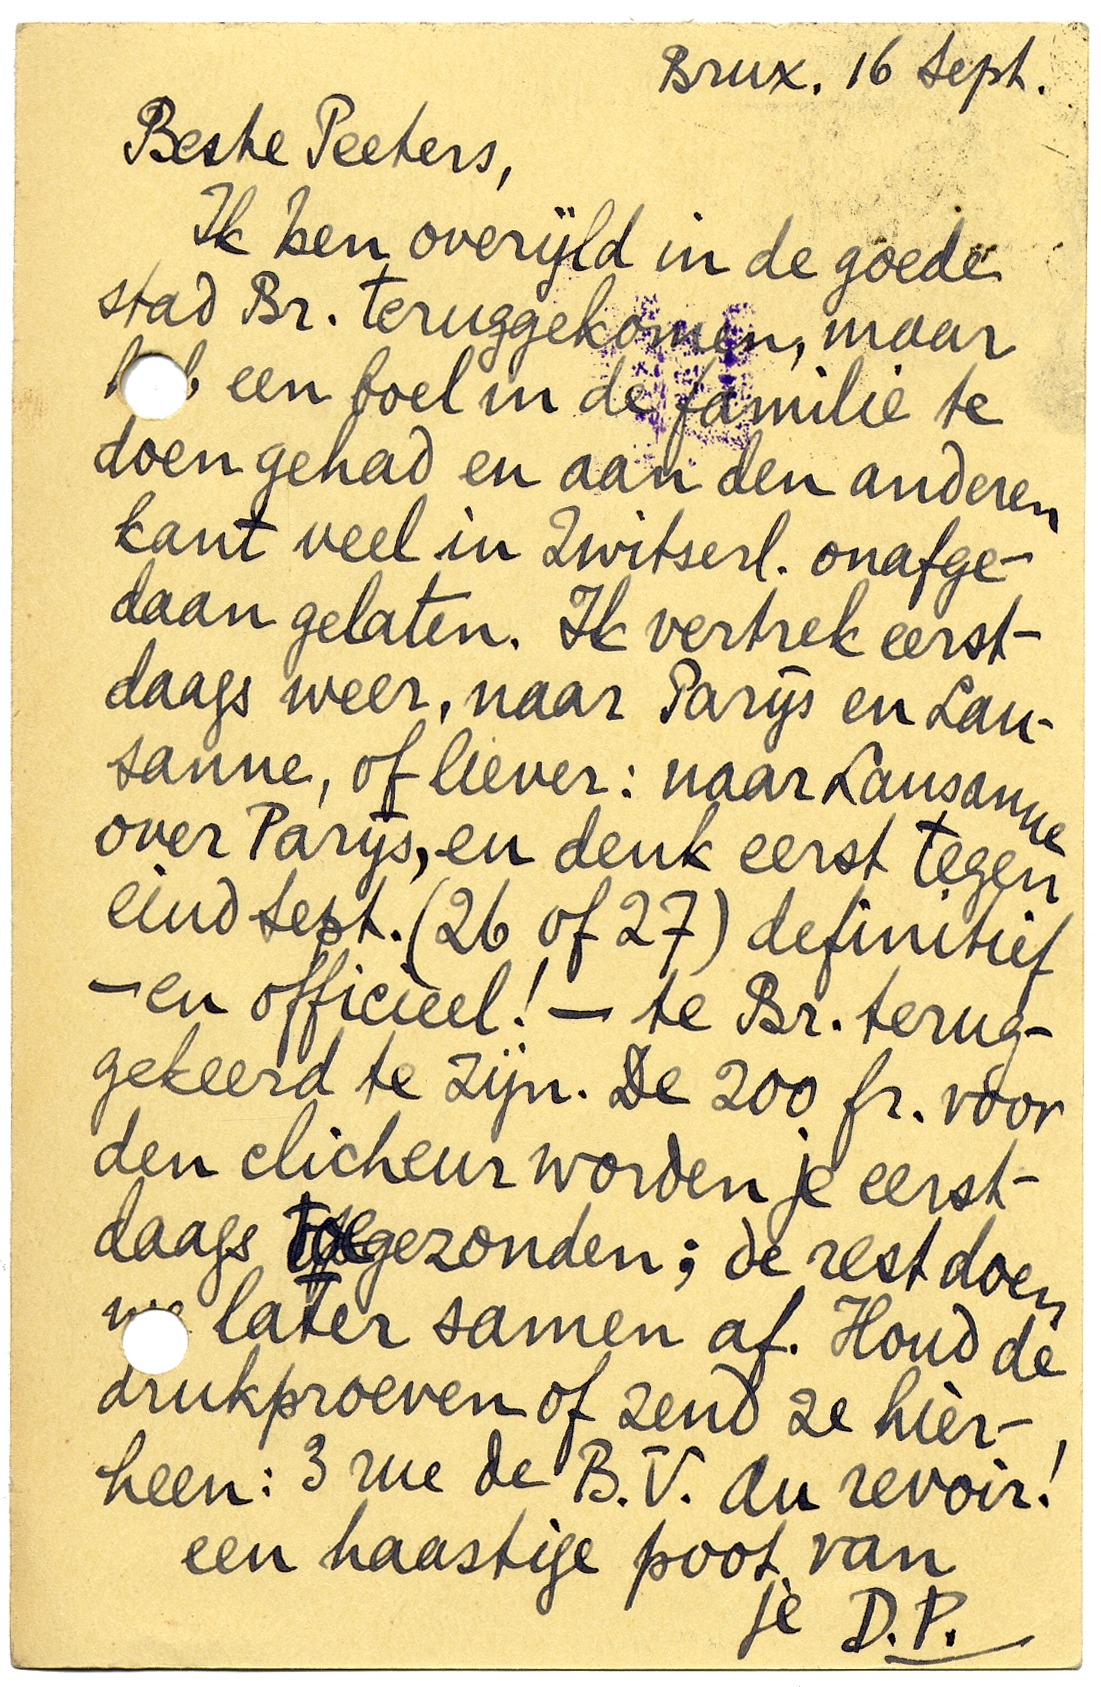 Brux. 16 Sept.
Beste Peeters,
Ik ben overijld in de goede
stad Br. teruggekomen, maar
heb een boel in de familie te
doen gehad en aan den anderen
kant veel in Zwitserl. onafge-
daan gelaten. Ik vertrek eerst-
daags weer, naar Parijs en Lau-
sanne, of liever: naar Lausanne
over Parijs, en denk eerst tegen
eind Sept. (26 of 27) definitief
— en officieel! — te Br. terug-
gekeerd te zijn. De 200 fr. voor
den clicheur worden je eerst-
daags toegezonden; de rest doen
we later samen af. Houd de
drukproeven of zend ze hièr-
heen: 3 rue de B.V. Au revoir!
een haastige poot van
je D.P.